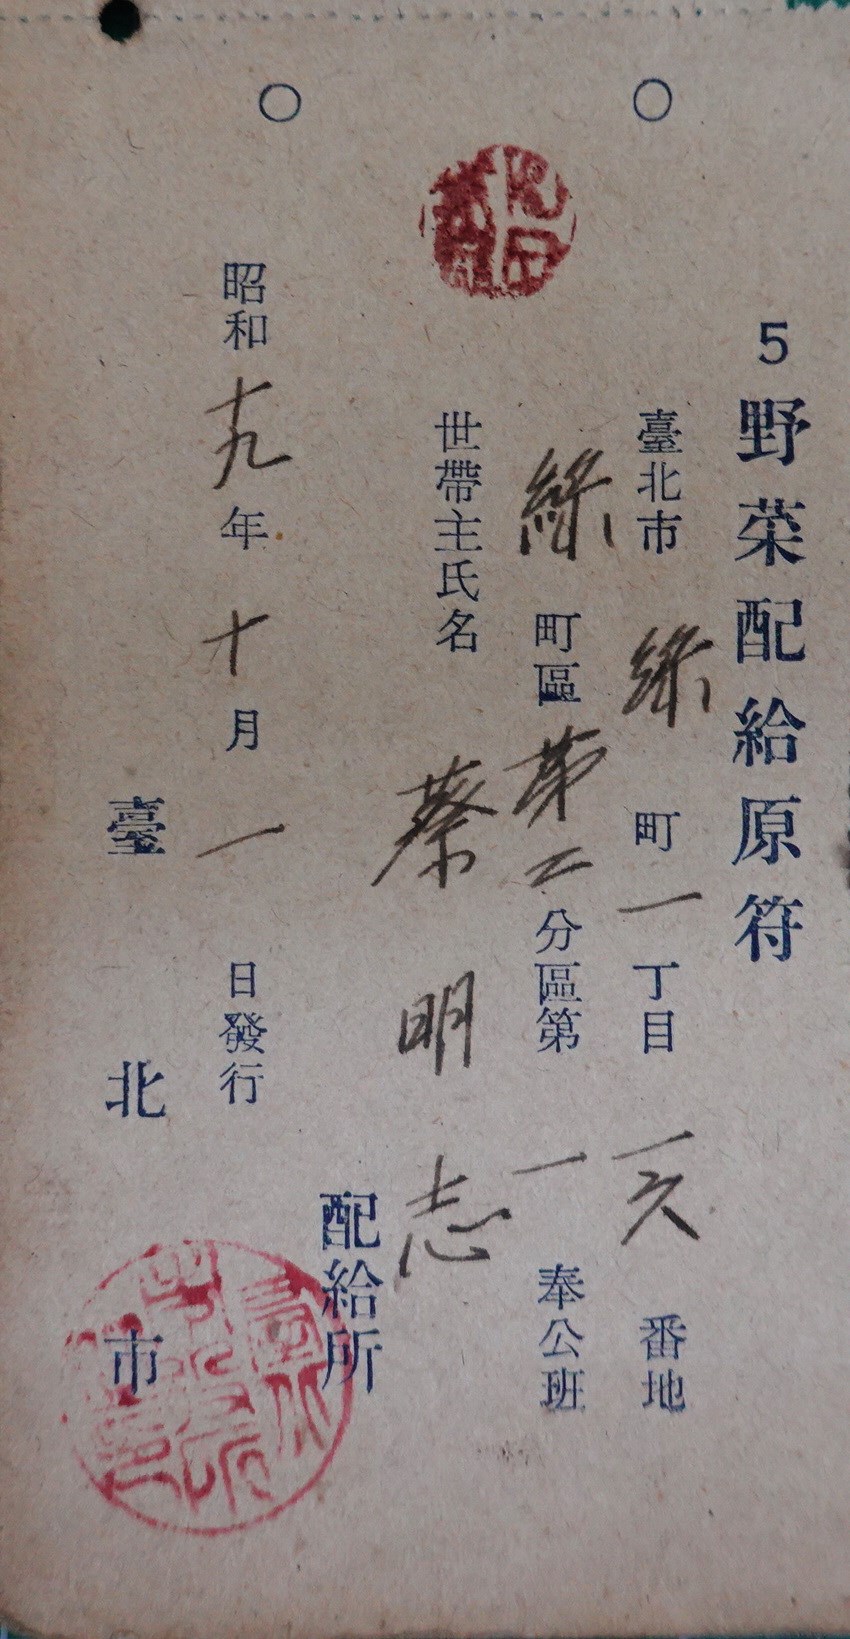 5 野菜配給原符
臺北市綠町一丁目一六番地
綠町區第二分區第一奉公班
世帶主氏名 蔡明志
配給所
昭和十九年十月一日發行
臺北市